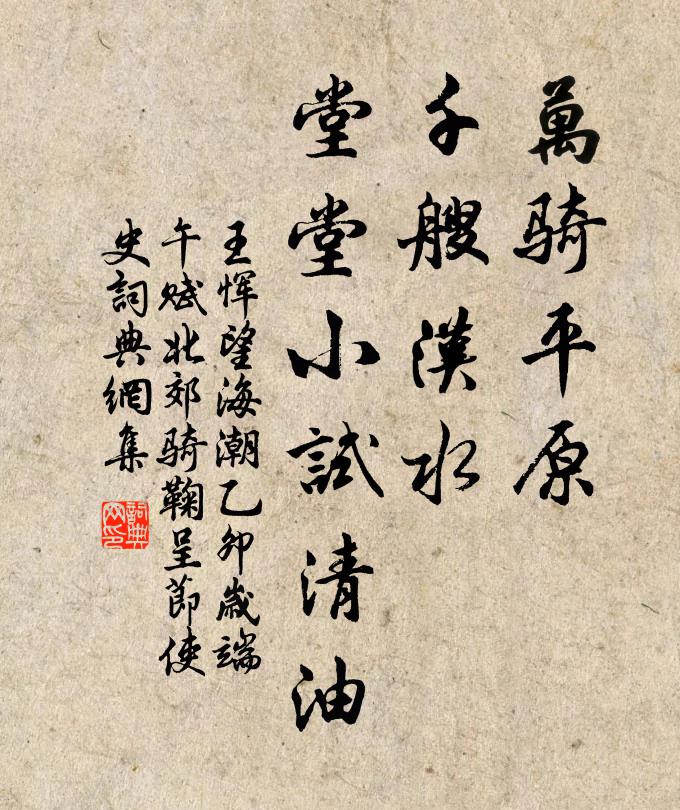 萬骑平原
千艘漢水
堂堂小試清油
王恽望海潮乙卯歲端
午赋北郊骑鞠呈節使
史詞典網集
詞典
网印